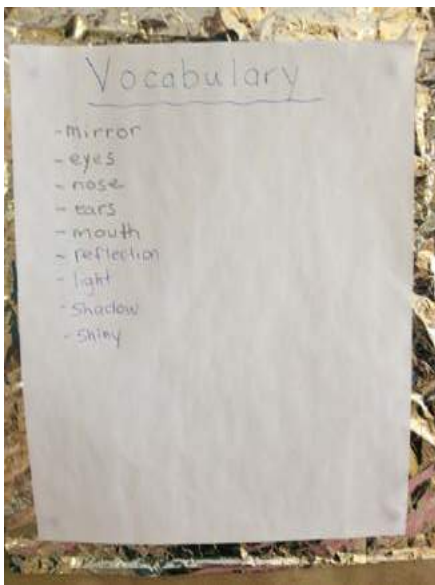 Vocabulary
-mirror
-eyes
-nose
-ears
-mouth
-reflection
-light
-shadow
-shiny